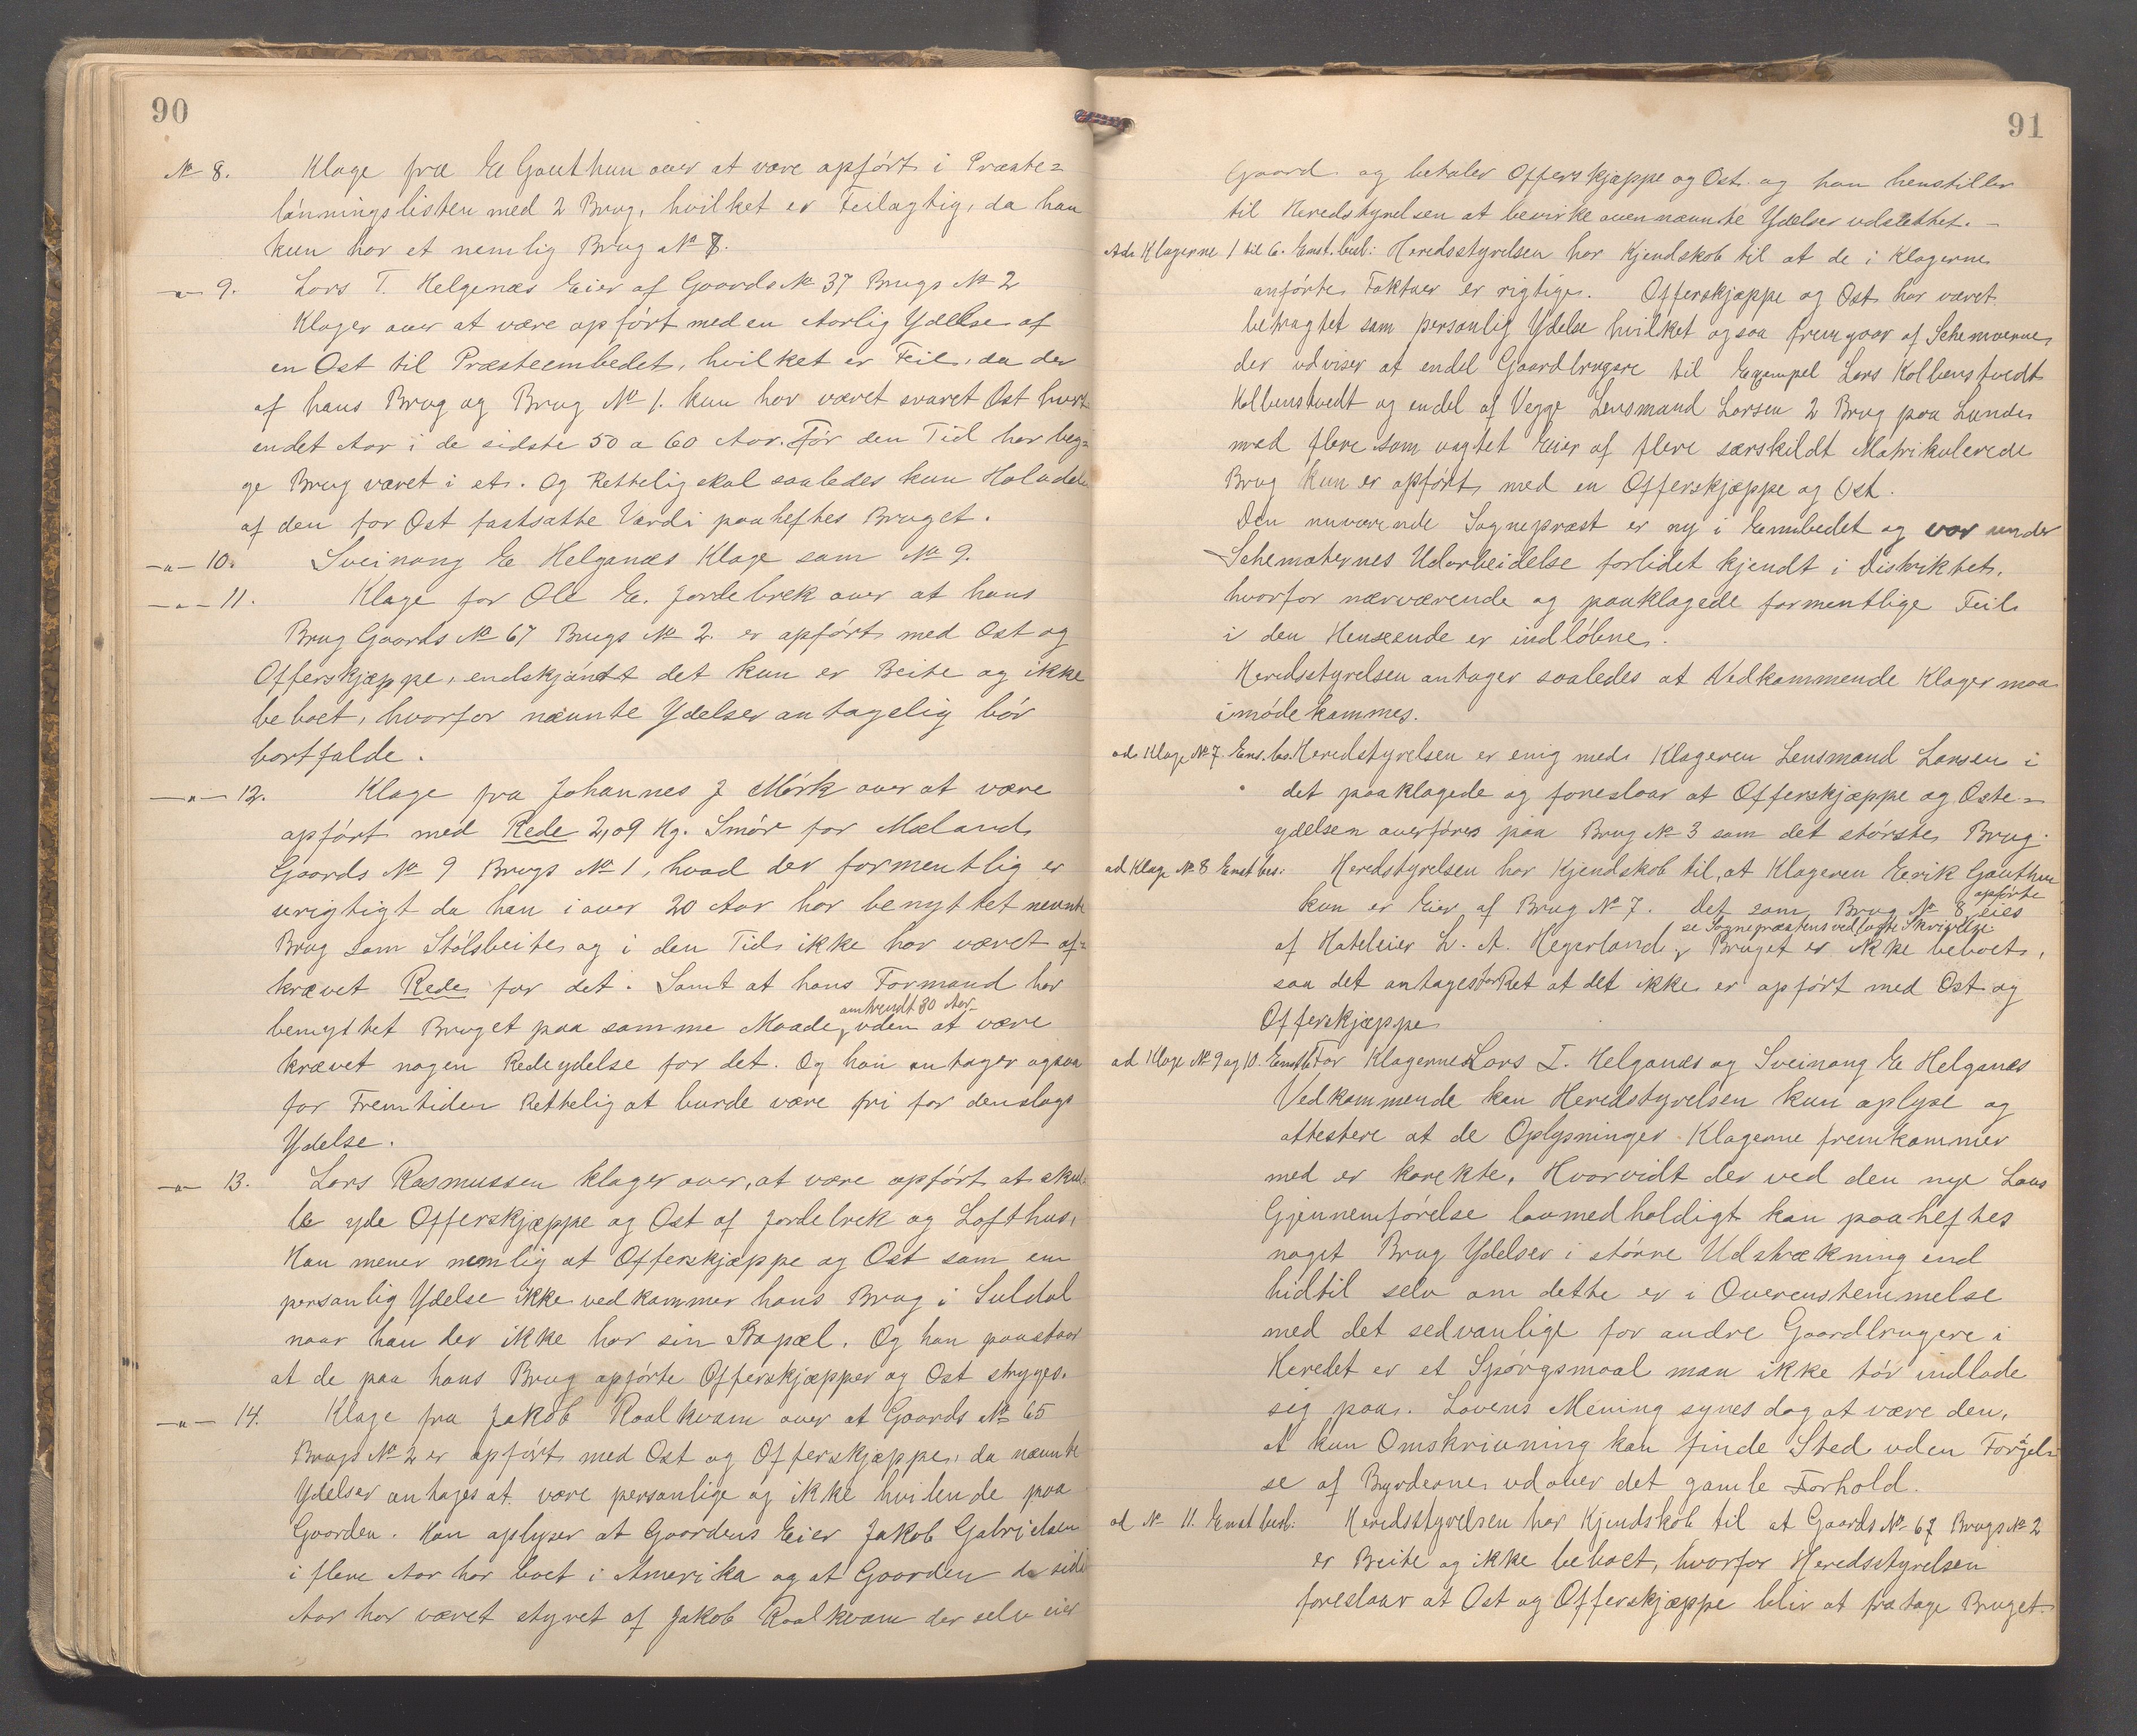 90
№ 8. Klage fra E Gauthun over at være opført i Præste=
lønningslisten med 2 Brug, hvilket er Feilagtig, da han
kun har et nemlig Brug № 7.
-"- 9. Lars T. Helgenæs Eier af Gaards № 37 Brugs № 2
Klager over at være opført med en Aarlig Ydelse af
en Ost til Præsteembedet, hvilket er Feil, da der
af hans Brug og Brug № 1. kun har været svaret Ost hvert
andet Aar i de sidste 50 a 60 Aar. Før den Tid har beg=
ge Brug været i et. Og Rettelig skal saaledes kun Halvdelen
af den for Ost fastsatte Værdi paaheftes Bruget.
-"- 10. Sveinong E Helganæs Klage som № 9.
-"- 11. Klage for Ole E. Jordebrek over at hans
Brug Gaards № 67 Brugs № 2. er opført med Ost og
Offerskjæppe, endskjøndt det kun er Beite og ikke
beboet, hvorfor nævnte Ydelser antagelig bør
bortfalde.
-"- 12. Klage fra Johannes J Mørk over at være
opført med Rede 2,09 Kg. Smør for Mæland
Gaards № 9 Brugs № 1, hvad der formentlig er
urigtigt da han i over 20 Aar har benyttet nævnte
Brug som Stølsbeite og i den Tid ikke har været af=
krævet Rede for det. Samt at hans Formand har
benyttet Bruget paa samme Maade omtrendt 30 Aar uden at være
krævet nogen Redeydelse for det. Og han antager ogsaa
for Fremtiden Rettelig at burde være fri for denslags
Ydelse.
-"- 13. Lars Rasmussen klager over, at være opført at skul=
le yde Offerskjæppe og Ost af Jordebrek og Lofthus,
Han mener nemlig at Offerskjæppe og Ost som en
personlig Ydelse ikke vedkommer hans Brug i Suldal
naar han der ikke har sin Bopæl. Og han paastaar
at de paa hans Brug opførte Offerskjæpper og Ost stryges.
-"- 14. Klage fra Jakob Raalkvam over at Gaards № 65
Brugs № 2 er opført med Ost og Offerskjæppe, da nævnte
Ydelser antages at være personlige og ikke hvilende paa
Gaarden. Han oplyser at Gaardens Eier Jakob Gabrielsen
i flere Aar har boet i Amerika og at Gaarden de sidste
Aar har været styret af Jakob Raalkvam der selv eier
91
Gaard og betaler Offerskjæppe og Ost og han henstiller
til Heredstyrelsen at bevirke ovennævnte Ydelser udslettet.
Ad Klagerne 1 til 6. Enst. besl: Heredsstyrelsen har Kjendskab til at de i Klagerne
anførte Faktaer er rigtige. Offerskjæppe og Ost har været
betragtet som personlig Ydelse hvilket ogsaa fremgaar af Schemaerne,
der udviser at endel Gaardbrugere til Exempel Lars Kolbenstvedt
Kolbenstvedt og endel af Vegge Lensmand Larsen 2 Brug paa Lunde
med flere som uagtet Eier af flere særskildt Matrikulerede
Brug kun er opført med en Offerskjæppe og Ost.
Den nuværende Sognepræst er ny i Embedet og var under
Schematernes Udarbeidelse forlidet kjendt i Distriktet,
hvorfor nærværende og paaklagede formentlige Feil
i den Henseende er indløbne.
Heredsstyrelsen antager saaledes at Vedkommende Klager maa
imødekommes.
ad Klage № 7. Ens. bes. Heredstyrelsen er enig med Klageren Lensmand Larsen i
det paaklagede og foreslaar at Offerskjæppe og Oste=
ydelsen overføres paa Brug № 3 som det største Brug.
ad Klage № 8 Enst bes: Heredstyrelsen har Kjendskab til, at Klageren Eerik Gauthun
kun er Eier af Brug № 7. Det som Brug № 8 opførte eies
af Hoteleier L. A. Hegerland, se Sognepræstens vedlagte Skrivelse Bruget er ikke beboet,
saa det antages for Ret at det ikke er opført med Ost og
Offerskjæppe
ad Klage № 9 og 10. Enstb For Klagerne Lars T. Helganæs og Sveinong E Helganæs
Vedkommende kan Heredstyrelsen kun oplyse og
attestere at de Oplysninger Klagerne fremkommer
med er korekte, Hvorvidt der ved den nye Lovs
Gjennemførelse lovmedholdigt kan paaheftes
noget Brug Ydelser i større Udstrækning end
hidtil selv om dette er i Overenstemmelse
med det sedvanlige for andre Gaardbrugere i
Heredet er et Spørgsmaal man ikke tør indlade
sig paa. Lovens Mening synes dog at være den,
at kun Omskrivning kan finde Sted uden Forøgel=
se af Byrderne udover det gamle Forhold.
ad № 11. Enst besl: Heredsstyrelsen har Kjendskab til at Gaards № 67 Brugs № 2
er Beite og ikke beboet, hvorfor Heredsstyrelsen
foreslaar at Ost og Offerskjæppe blir at fratage Bruget.